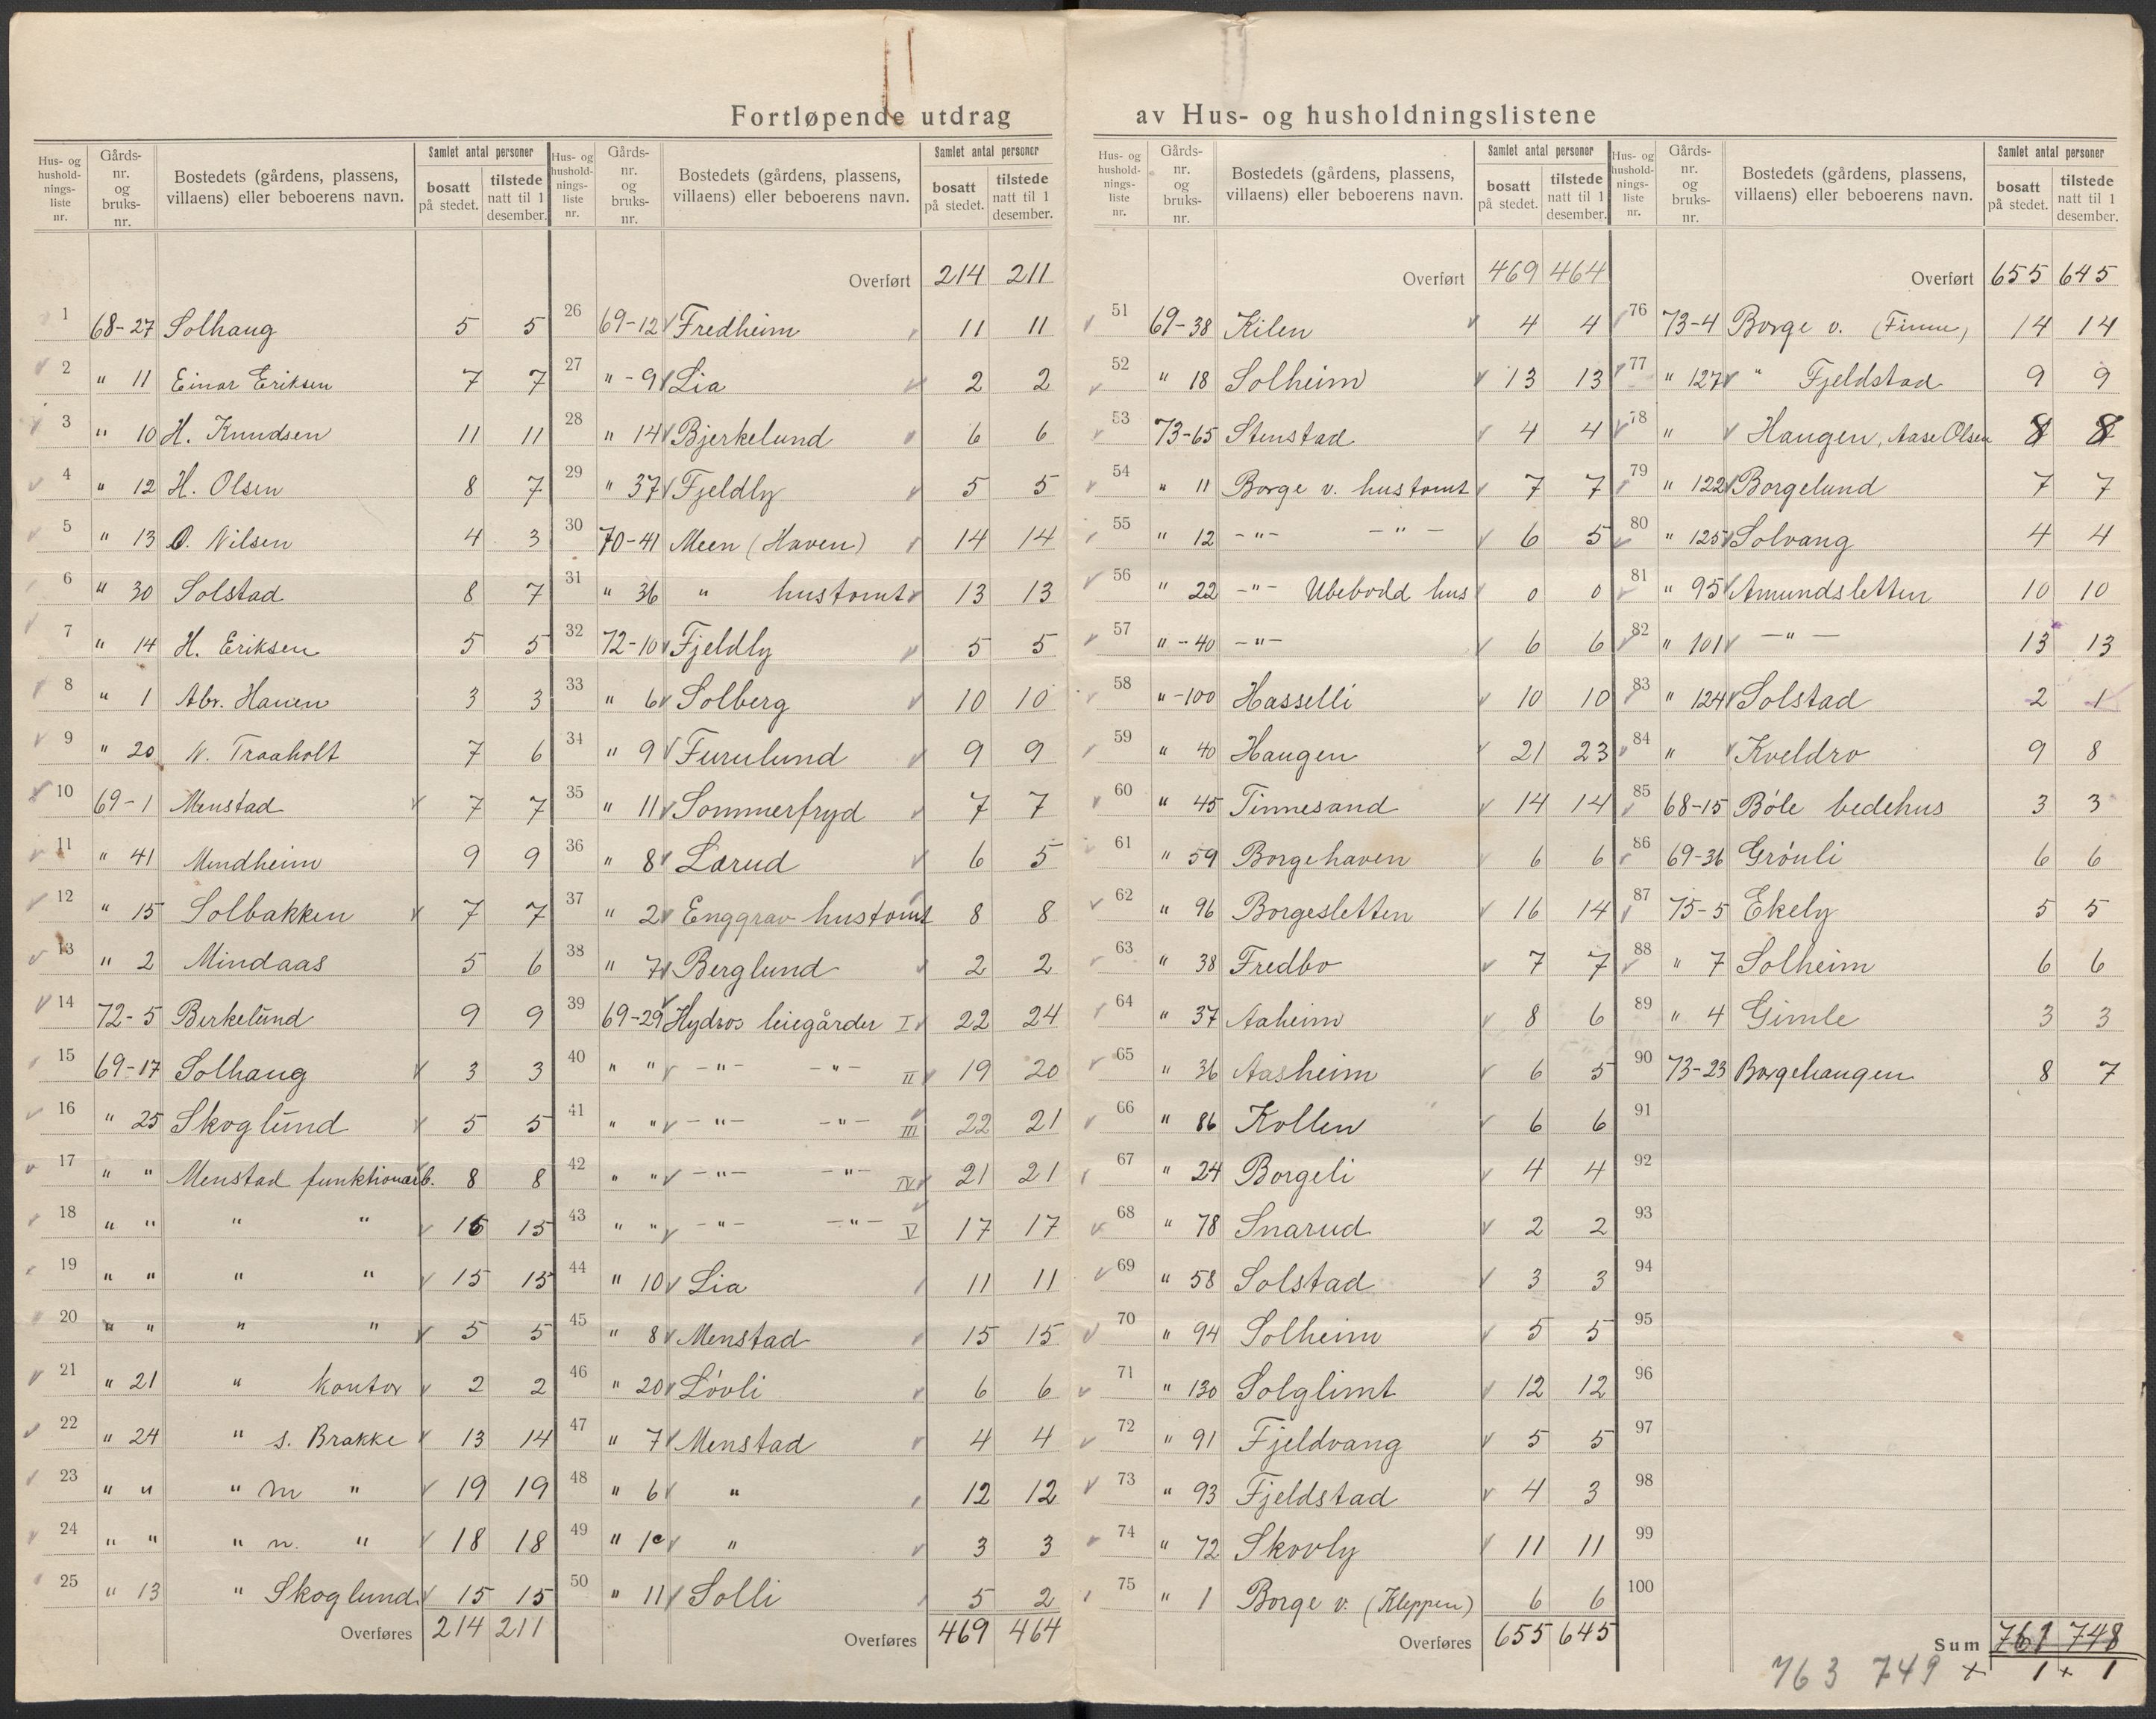 Fortløpende utdrag av Hus- og husholdningslistene
Hus- og hushold-nings-liste nr. | Gårds-nr. og bruks-nr. | Bostedets (gårdens, plassens, villaens) eller beboerens navn. | Samlet antal personer | bosatt på stedet. | tilstede natt til 1 desember.
1 68-27 Solhaug 5 5
2 " 11 Einar Eriksen 7 7
3 " 10 H. Knudsen 11 11
4 " 12 H. Olsen 8 7
5 " 13 O. Nilsen 4 3
6 " 30 Solstad 8 7
7 " 14 H. Eriksen 5 5
8 " 1 Abr. Hauen 3 3
9 " 20 N. Traaholt 7 6
10 69-1 Menstad 7 7
11 " 41 Mindheim 9 9
12 " 15 Solbakken 7 7
13 " 2 Mindaas 5 6
14 72-5 Birkelund 9 9
15 69-17 Solhaug 3 3
16 " 25 Skoglund 5 5
17 " " Menstad funktionærb. 8 8
18 " " " " 16 15
19 " " " " 15 15
20 " " " " 5 5
21 " 21 " kontor 2 2
22 " 24 " s. Brakke 13 14
23 " " " m " 19 19
24 " " " n. " 18 18
25 " 13 " Skoglund 15 15
Overføres 214 211
Hus- og hushold-nings-liste nr. | Gårds-nr. og bruks-nr. | Bostedets (gårdens, plassens, villaens) eller beboerens navn. | Samlet antal personer | bosatt på stedet. | tilstede natt til 1 desember.
Overført 214 211
26 69-12 Fredheim 11 11
27 " -9 Lia 2 2
28 " 14 Bjerkelund 6 6
29 " 37 Fjeldly 5 5
30 70-41 Meen (Haven) 14 14
31 " 36 " hustomt 13 13
32 72-10 Fjeldly 5 5
33 " 6 Solberg 10 10
34 " 9 Furulund 9 9
35 " 11 Sommerfryd 7 7
36 " 8 Lærud 6 5
37 " 2 Enggrav hustomt 8 8
38 " 7 Berglund 2 2
39 69-29 Hydros leiegårder I 22 24
40 " " -"- -"- II 19 20
41 " " -"- -"- III 22 21
42 " " -"- -"- IV 21 21
43 " " -"- -"- V 17 17
44 " 10 Lia 11 11
45 " 8 Menstad 15 15
46 " 20 Lövli 6 6
47 " 7 Menstad 4 4
48 " 6 " 12 12
49 " 1c " 3 3
50 " 11 Solli 5 2
Overføres 469 464
Hus- og hushold-nings-liste nr. | Gårds-nr. og bruks-nr. | Bostedets (gårdens, plassens, villaens) eller beboerens navn. | Samlet antal personer | bosatt på stedet. | tilstede natt til 1 desember.
Overført 469 464
51 69-38 Kilen 4 4
52 " 18 Solheim 13 13
53 73-65 Stenstad 4 4
54 " 11 Borge v. hustomt 7 7
55 " 12 -"- -"- 6 5
56 " 22 -"- Ubebodd hus 0 0
57 " -40 -"- 6 6
58 " -100 Hasselli 10 10
59 " 40 Haugen 21 23
60 " 45 Tinnesand 14 14
61 " 59 Borgehaven 6 6
62 " 96 Borgesletten 16 14
63 " 38 Fredbo 7 7
64 " 37 Aaheim 8 6
65 " 36 Aasheim 6 5
66 " 86 Kollen 6 6
67 " 24 Borgeli 4 4
68 " 78 Snarud 2 2
69 " 58 Solstad 3 3
70 " 94 Solheim 5 5
71 " 130 Solglimt 12 12
72 " 91 Fjeldvang 5 5
73 " 93 Fjeldstad 4 3
74 " 72 Skovly 11 11
75 " 1 Borge v. (Kleppen) 6 6
Overføres 655 645
Hus- og hushold-nings-liste nr. | Gårds-nr. og bruks-nr. | Bostedets (gårdens, plassens, villaens) eller beboerens navn. | Samlet antal personer | bosatt på stedet. | tilstede natt til 1 desember.
Overført 655 645
76 73-4 Borge v. (Finne) 14 14
77 " 127 " Fjeldstad 9 9
78 " Haugen, Aase Olsen 8 8
79 " 122 Borgelund 7 7
80 " 125 Solvang 4 4
81 " 95 Amundsletten 10 10
82 " 101 -"- 13 13
83 " 124 Solstad 2 1
84 " Kveldro 9 8
85 68-15 Böle bedehus 3 3
86 69-36 Grönli 6 6
87 75-5 Ekely 5 5
88 " 7 Solheim 6 6
89 " 4 Gimle 3 3
90 73-23 Borgehaugen 8 7
91
92
93
94
95
96
97
98
99
100
Sum 761 748
763 749 + 1 + 1